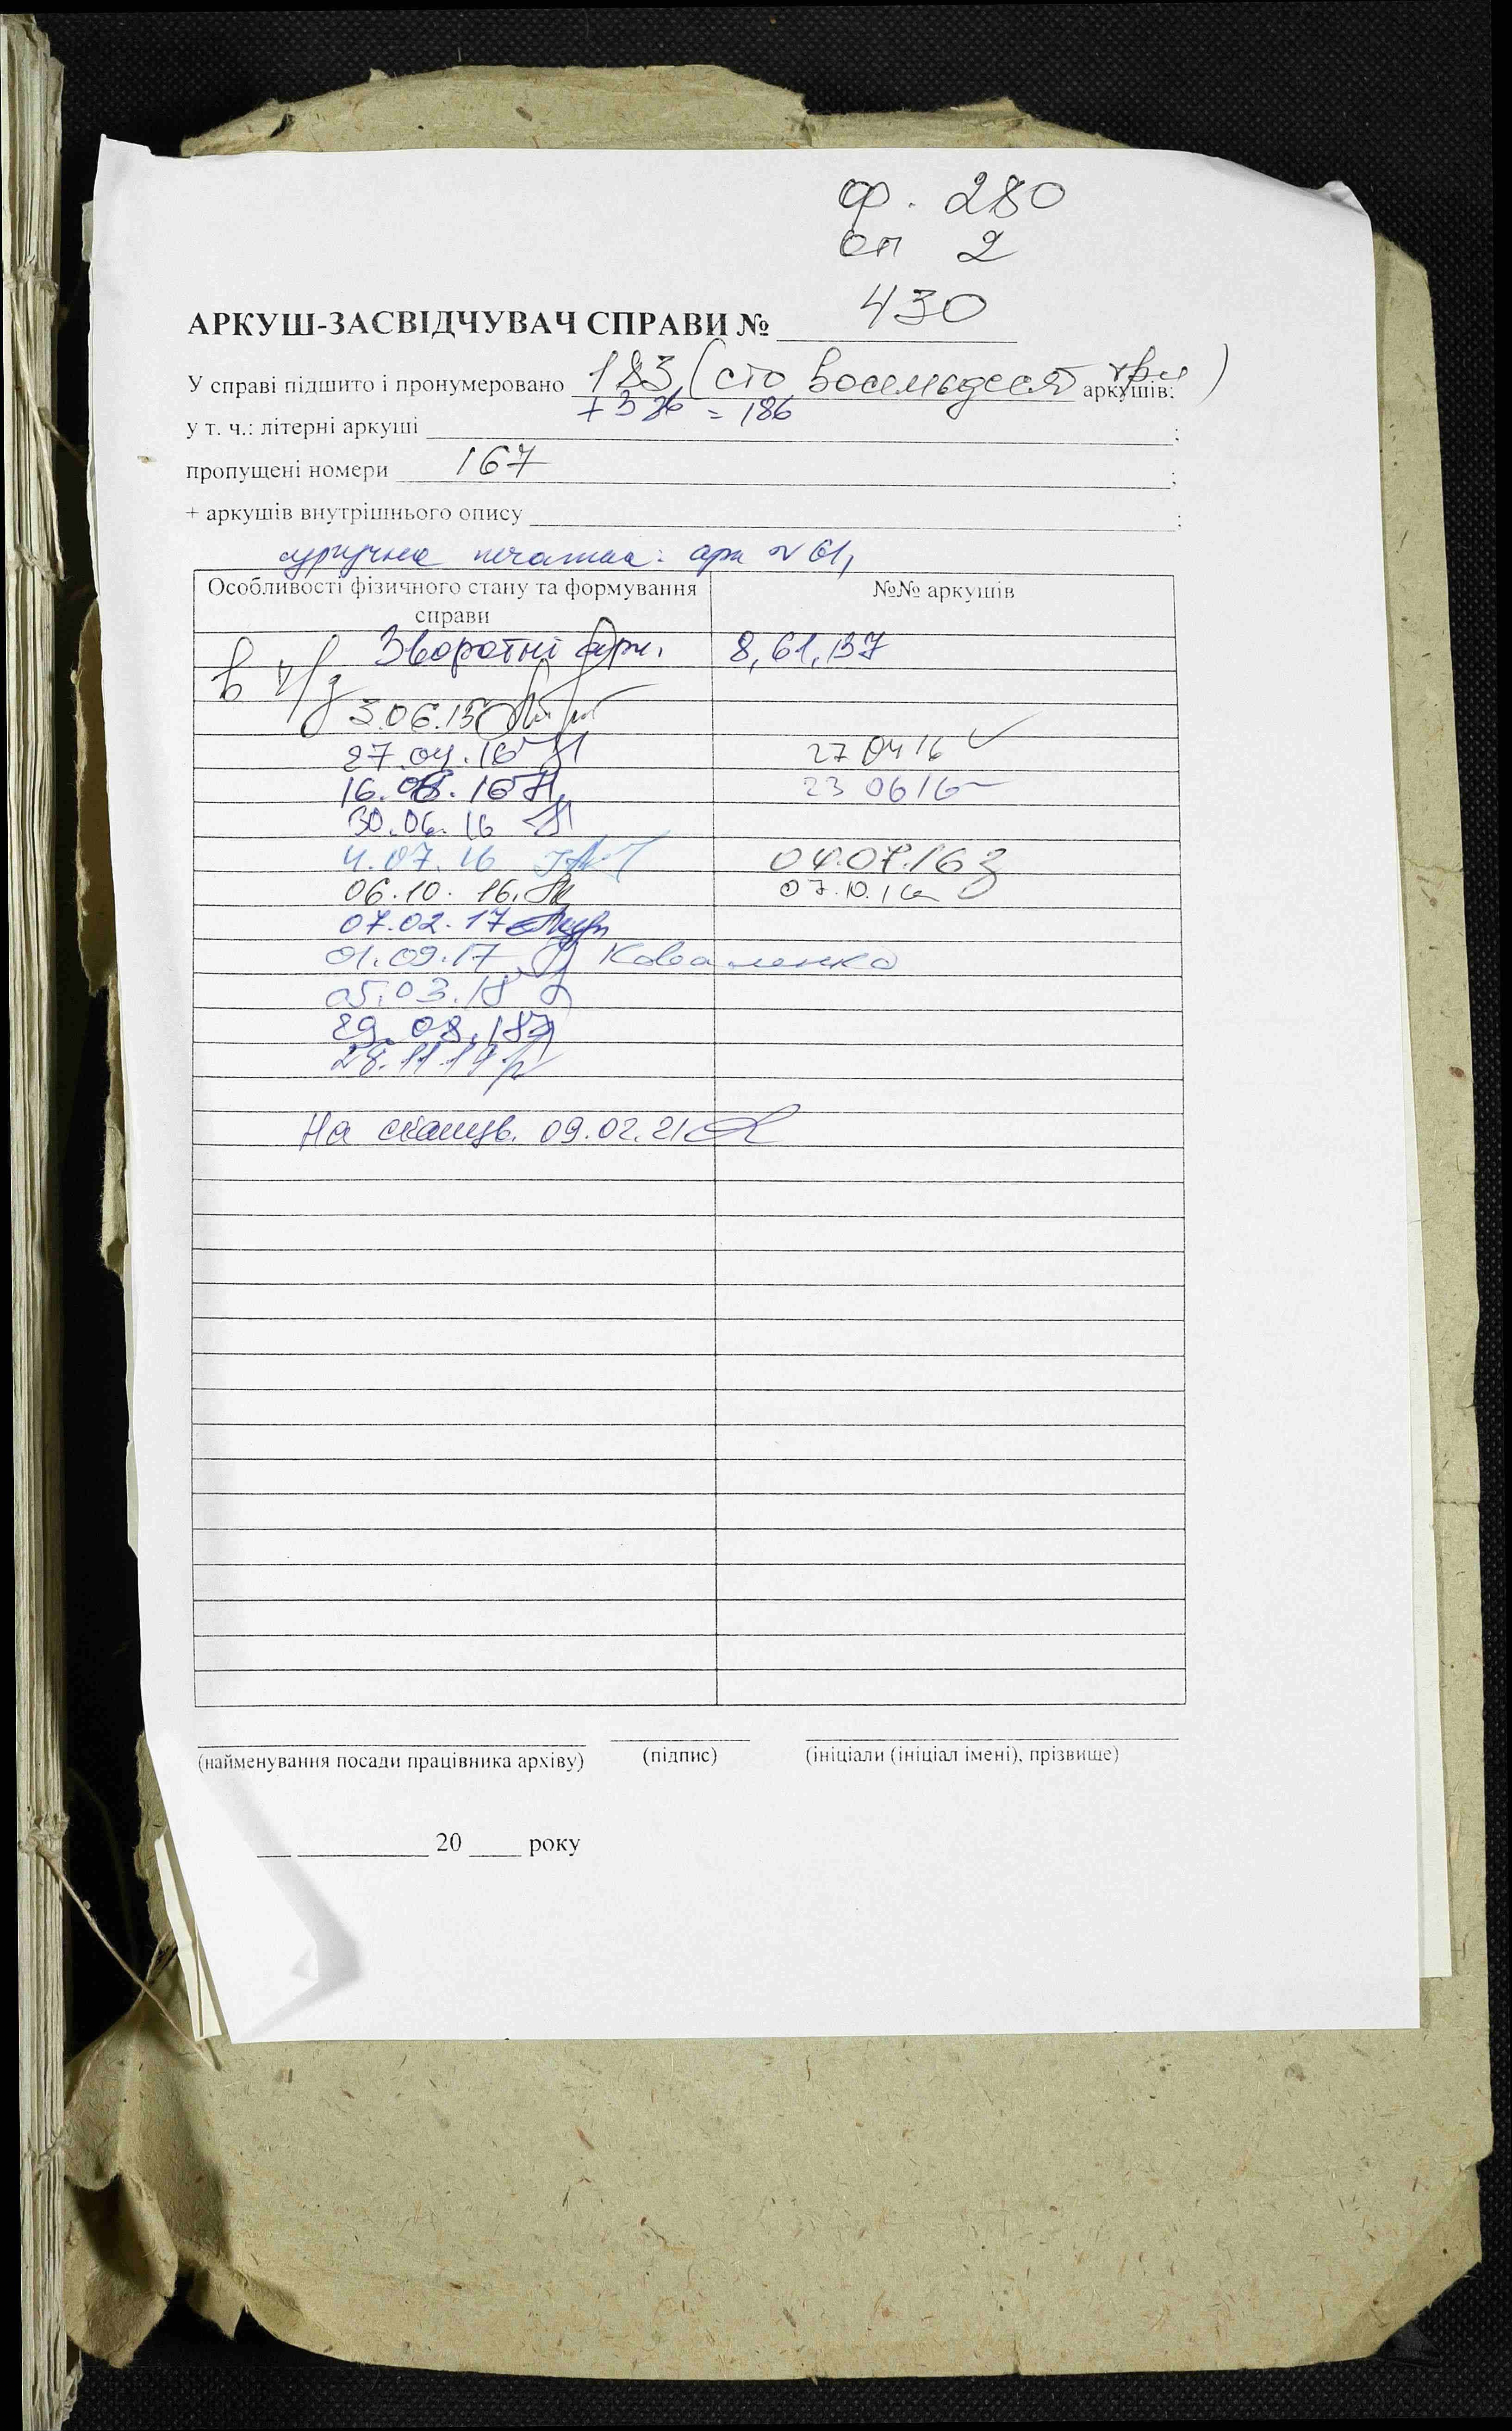 ф. 280
оп 2
АРКУШ-ЗАСВІДЧУВАЧ СПРАВИ № 430
У справі підшито і пронумеровано 183 (сто восемьдесят три) аркушів;
+ 3 = 186
у т. ч.: літерні аркуші ;
пропущені номери 167 ;
+ аркушів внутрішнього опису ;
сургучна печатка: арк № 61,
Особливості фізичного стану та формування справи №№ аркушів
Зворотні арк. 8, 61, 137
в ч/з
3.06.15
27.04.16 27 04 16
16.06.16 23 06 16
30.06.16
4.07.16 04.07.16
06.10.16. 07.10.16
07.02.17
01.09.17 Коваленко
05.03.18
29.08.18
28.11.19
На сканув. 09.02.21
(найменування посади працівника архіву) (підпис) (ініціали (ініціал імені), прізвище)
20 року